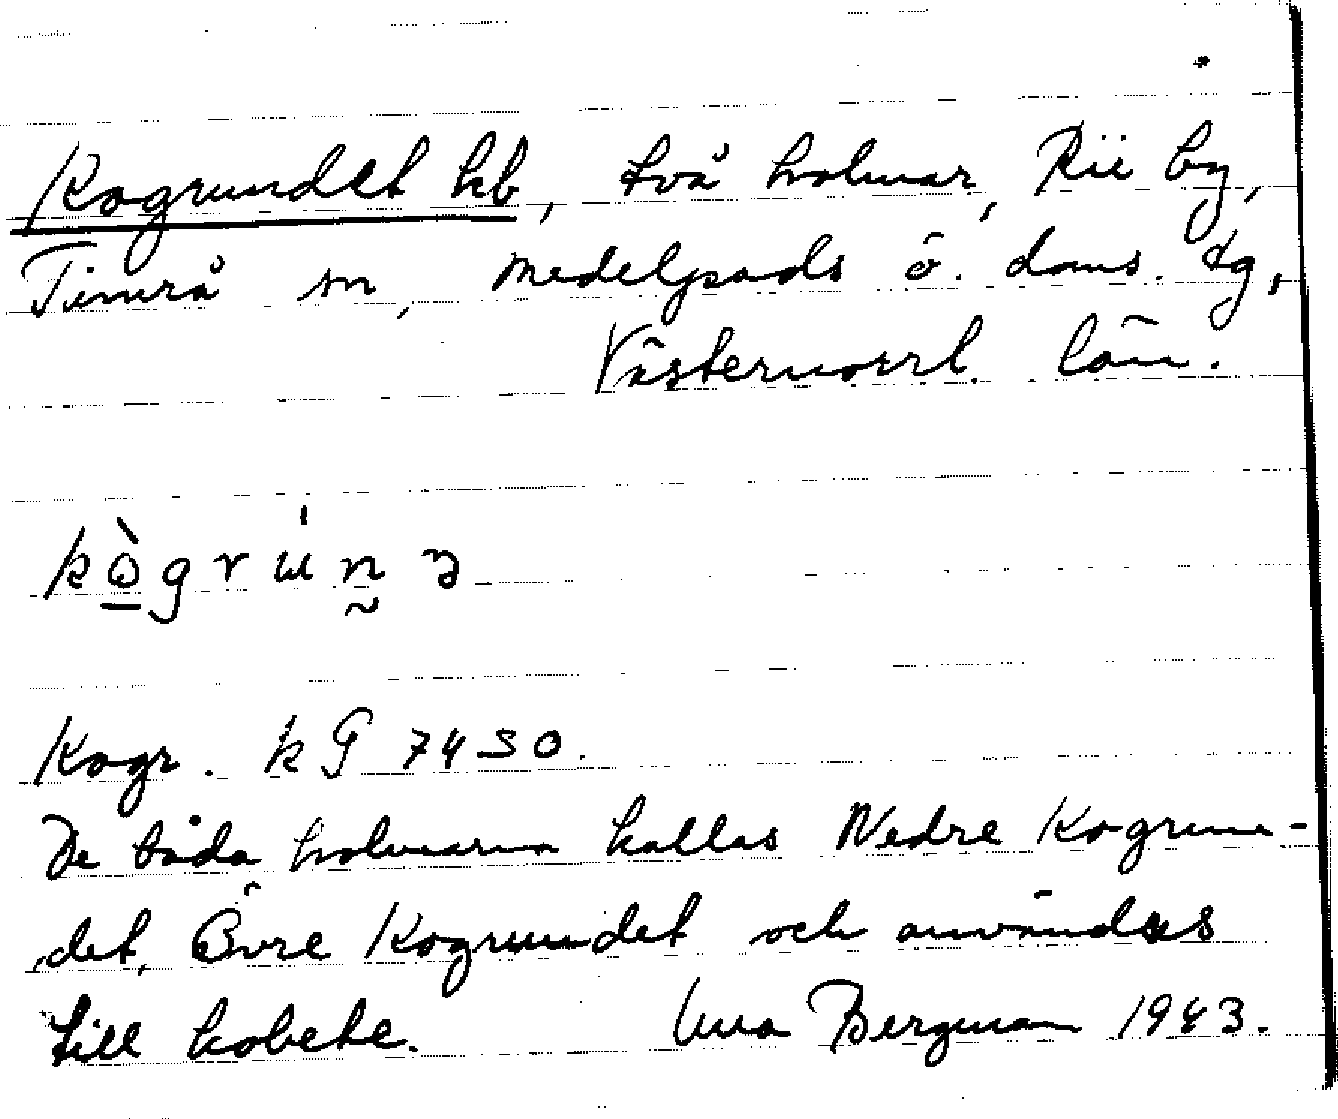 Kogrundet kb, två holmar, Rie by,
Timrå sn, Medelpads ö. doms. tg,
Västernorrl. län.
kògrúṉə
Kogr. kG 7430.
De båda holmarna kallas Nedre Kogrun-
det, Övre Kogrundet och användes
till kobete. Una Bergman 1943.